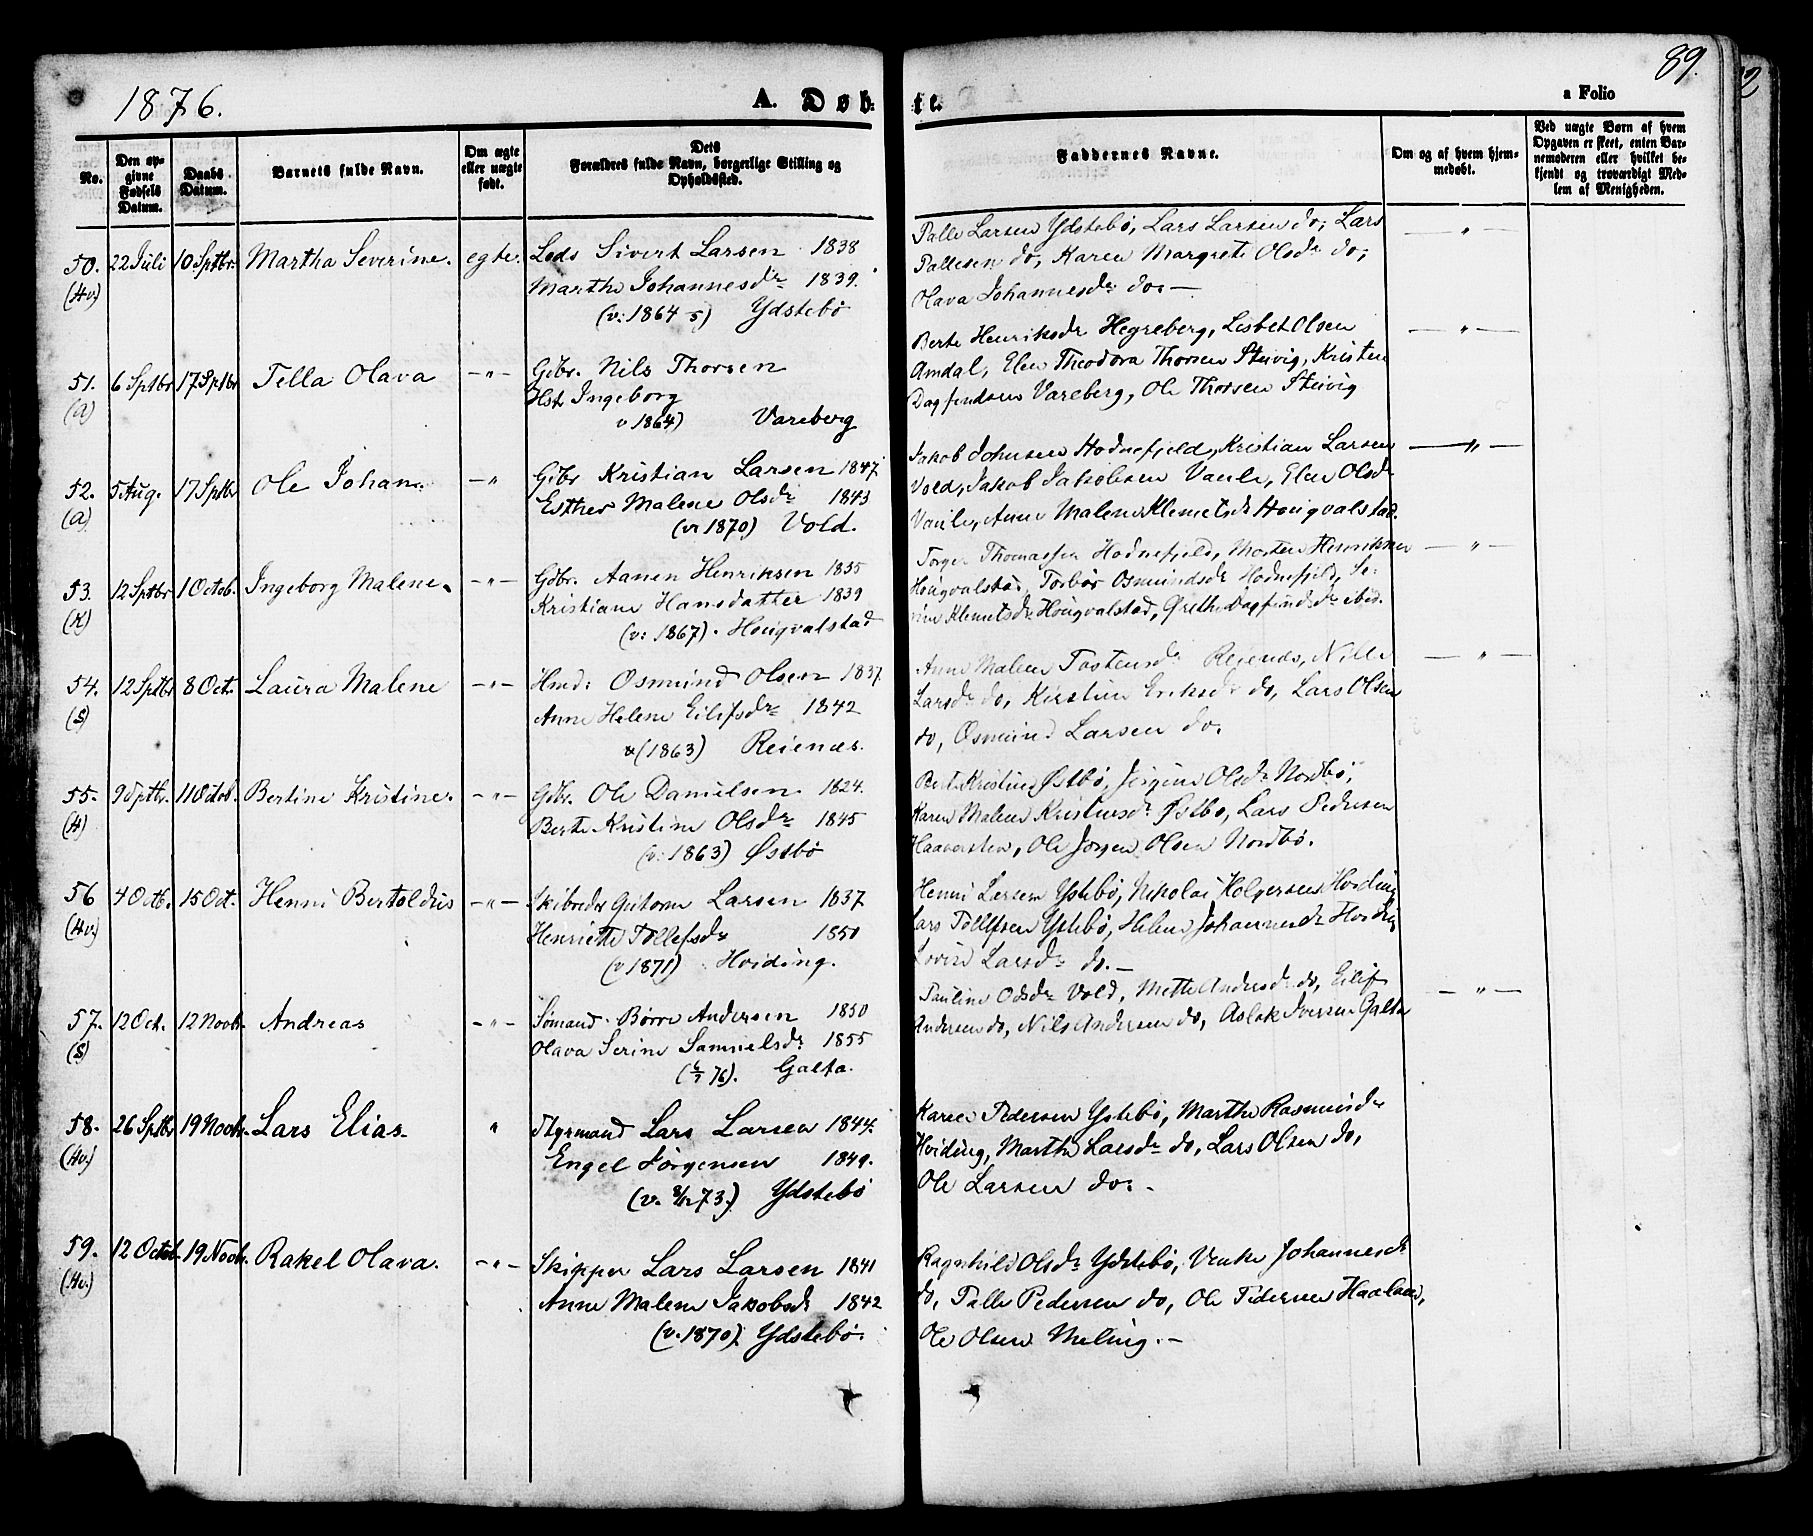 1876.
A. Døb-
te.
a Folio
89.
2
No.
Den op-
givne
Fødsels
Datum.
Daabs
Datum.
Barnets fulde Navn.
Om ægte
eller uægte
født.
Dets
Forældres fulde Navn, borgerlige Stilling og
Opholdssted.
Faddernes Navne.
Om og af hvem hjem-
medøbt.
Ved uægte Børn af hvem
Opgaven er skeet, enten Bar-
nemoderen eller hvilket be-
kjendt og troværdigt Med-
lem af Menigheden.
50. 22 Juli 10 Sptbr. Martha Severine. egte. Lods Sivert Larsen 1838
(Hv.) Marthe Johannesdr 1839.
(v: 1864 5) Ydstebö
Palle Larsen Ydstebö, Lars Larsen do, Lars
Pallesen do, Karen Margrete Olsdr do,
Olava Johannesdr do. —
— " —
51. 6 Sptbr 17 Sptbr Tella Olava — " — Gdbr. Nils Thorsen
(A) Hst. Ingeborg
v 1864) Vareberg
Berte Henriksdr Hegreberg, Lisbet Olsen
Amdal, Elen Theodora Thorsen Stuvig, Kristen
Dagfindsen Vareberg, Ole Thorsen Stuvig
— " —
52. 5 Aug. 17 Sptbr Ole Johan. — " Gdbr Kristian Larsen 1847
(A) Esther Malene Olsdr 1843
(v 1870) Vold.
Jakob Johnsen Hodnefjeld, Kristian Larsen
Vold, Jakob Jakobsen Vaule, Elen Olsdr
Vaule, Anne Malene Klemetsdr Hougvalstad.
— " —
53. 12 Sptbr 1 Octob. Ingeborg Malene. — " — Gdbr. Aanen Henriksen 1835
(K) Kristiane Hansdatter 1839
(v: 1867). Hougvalstad
Torger Thomassen Hodnefjeld, Morten Henriksen
Hougvalstad, Torbör Osmundsdr Hodnefjeld, Se-
rine Klemetsdr Hougvalstad, Grethe Dagfindsdr ibid.
— " —
54. 12 Sptbr 8 Oct. Laura Malene — " — Hmd: Osmund Olsen 1837
(S) Anne Helene Eilifsdr 1842
(1863) Reienæs.
Anne Malene Tostensdr Reienæs, Nille
Larsdr do, Kirstine Eriksdr do, Lars Olsen
do, Osmund Larsen do.
— " —
55. 9 Sptbr. 1 Octob. Bertine Kristine. — " — Gdbr. Ole Danielsen 1824.
(H) Berte Kristine Olsdr 1845
(v: 1863) Østbö
Berte Kristine Østbö, Jörgine Olsdr Nordbö,
Karen Malene Kristensdr Østbö, Lars Pedersen
Haaversten, Ole Jörgen Olsen Nordbö.
56 4 Octb. 15 Oct. Henni Bertoldus — " — Skibreder Gutorm Larsen 1837
(Hv.) Henriette Tollefsdr 1850
(v 1871) Hviding.
Henni Larsen Ystebö, Nikolai Holgersen Hviding
Lars Tollefsen Ystebö, Helene Johannesdr Hviding
Larsdr do. —
57. 12 Oct. 12 Novb. Andreas — " — Sömand. Börre Andersen 1850
(S) Olava Serine Samuelsdr 1855
76). Galta.
Pauline Olsdr Vold, Mette Andersdr do, Eilif
Andersen do, Nils Andersen do, Aslak Iversen Galta
— " —
58. 26 Sptbr 19 Novb. Lars Elias. " Styrmand Lars Larsen 1844.
(Hv.) Engel Jörgensen 1849.
(v. 8/12 73.) Ydstebö
Karen Pedersen Ystebö, Marthe Rasmusdr
Hviding, Marthe Larsdr do, Lars Olsen do,
Ole Larsen do. -
59. 12 Octob. 19 Novb. Rakel Olava. — " — Skipper Lars Larsen 1841
(Hv.) Anne Malene Jakobsdr 1842
(v. 1870). Ydstebö.
Ragnhild Olsdr Ydstebö, Venke Johannesdr
do, Palle Pedersen do, Ole Pedersen Haaland,
Ole Olsen Meling. —